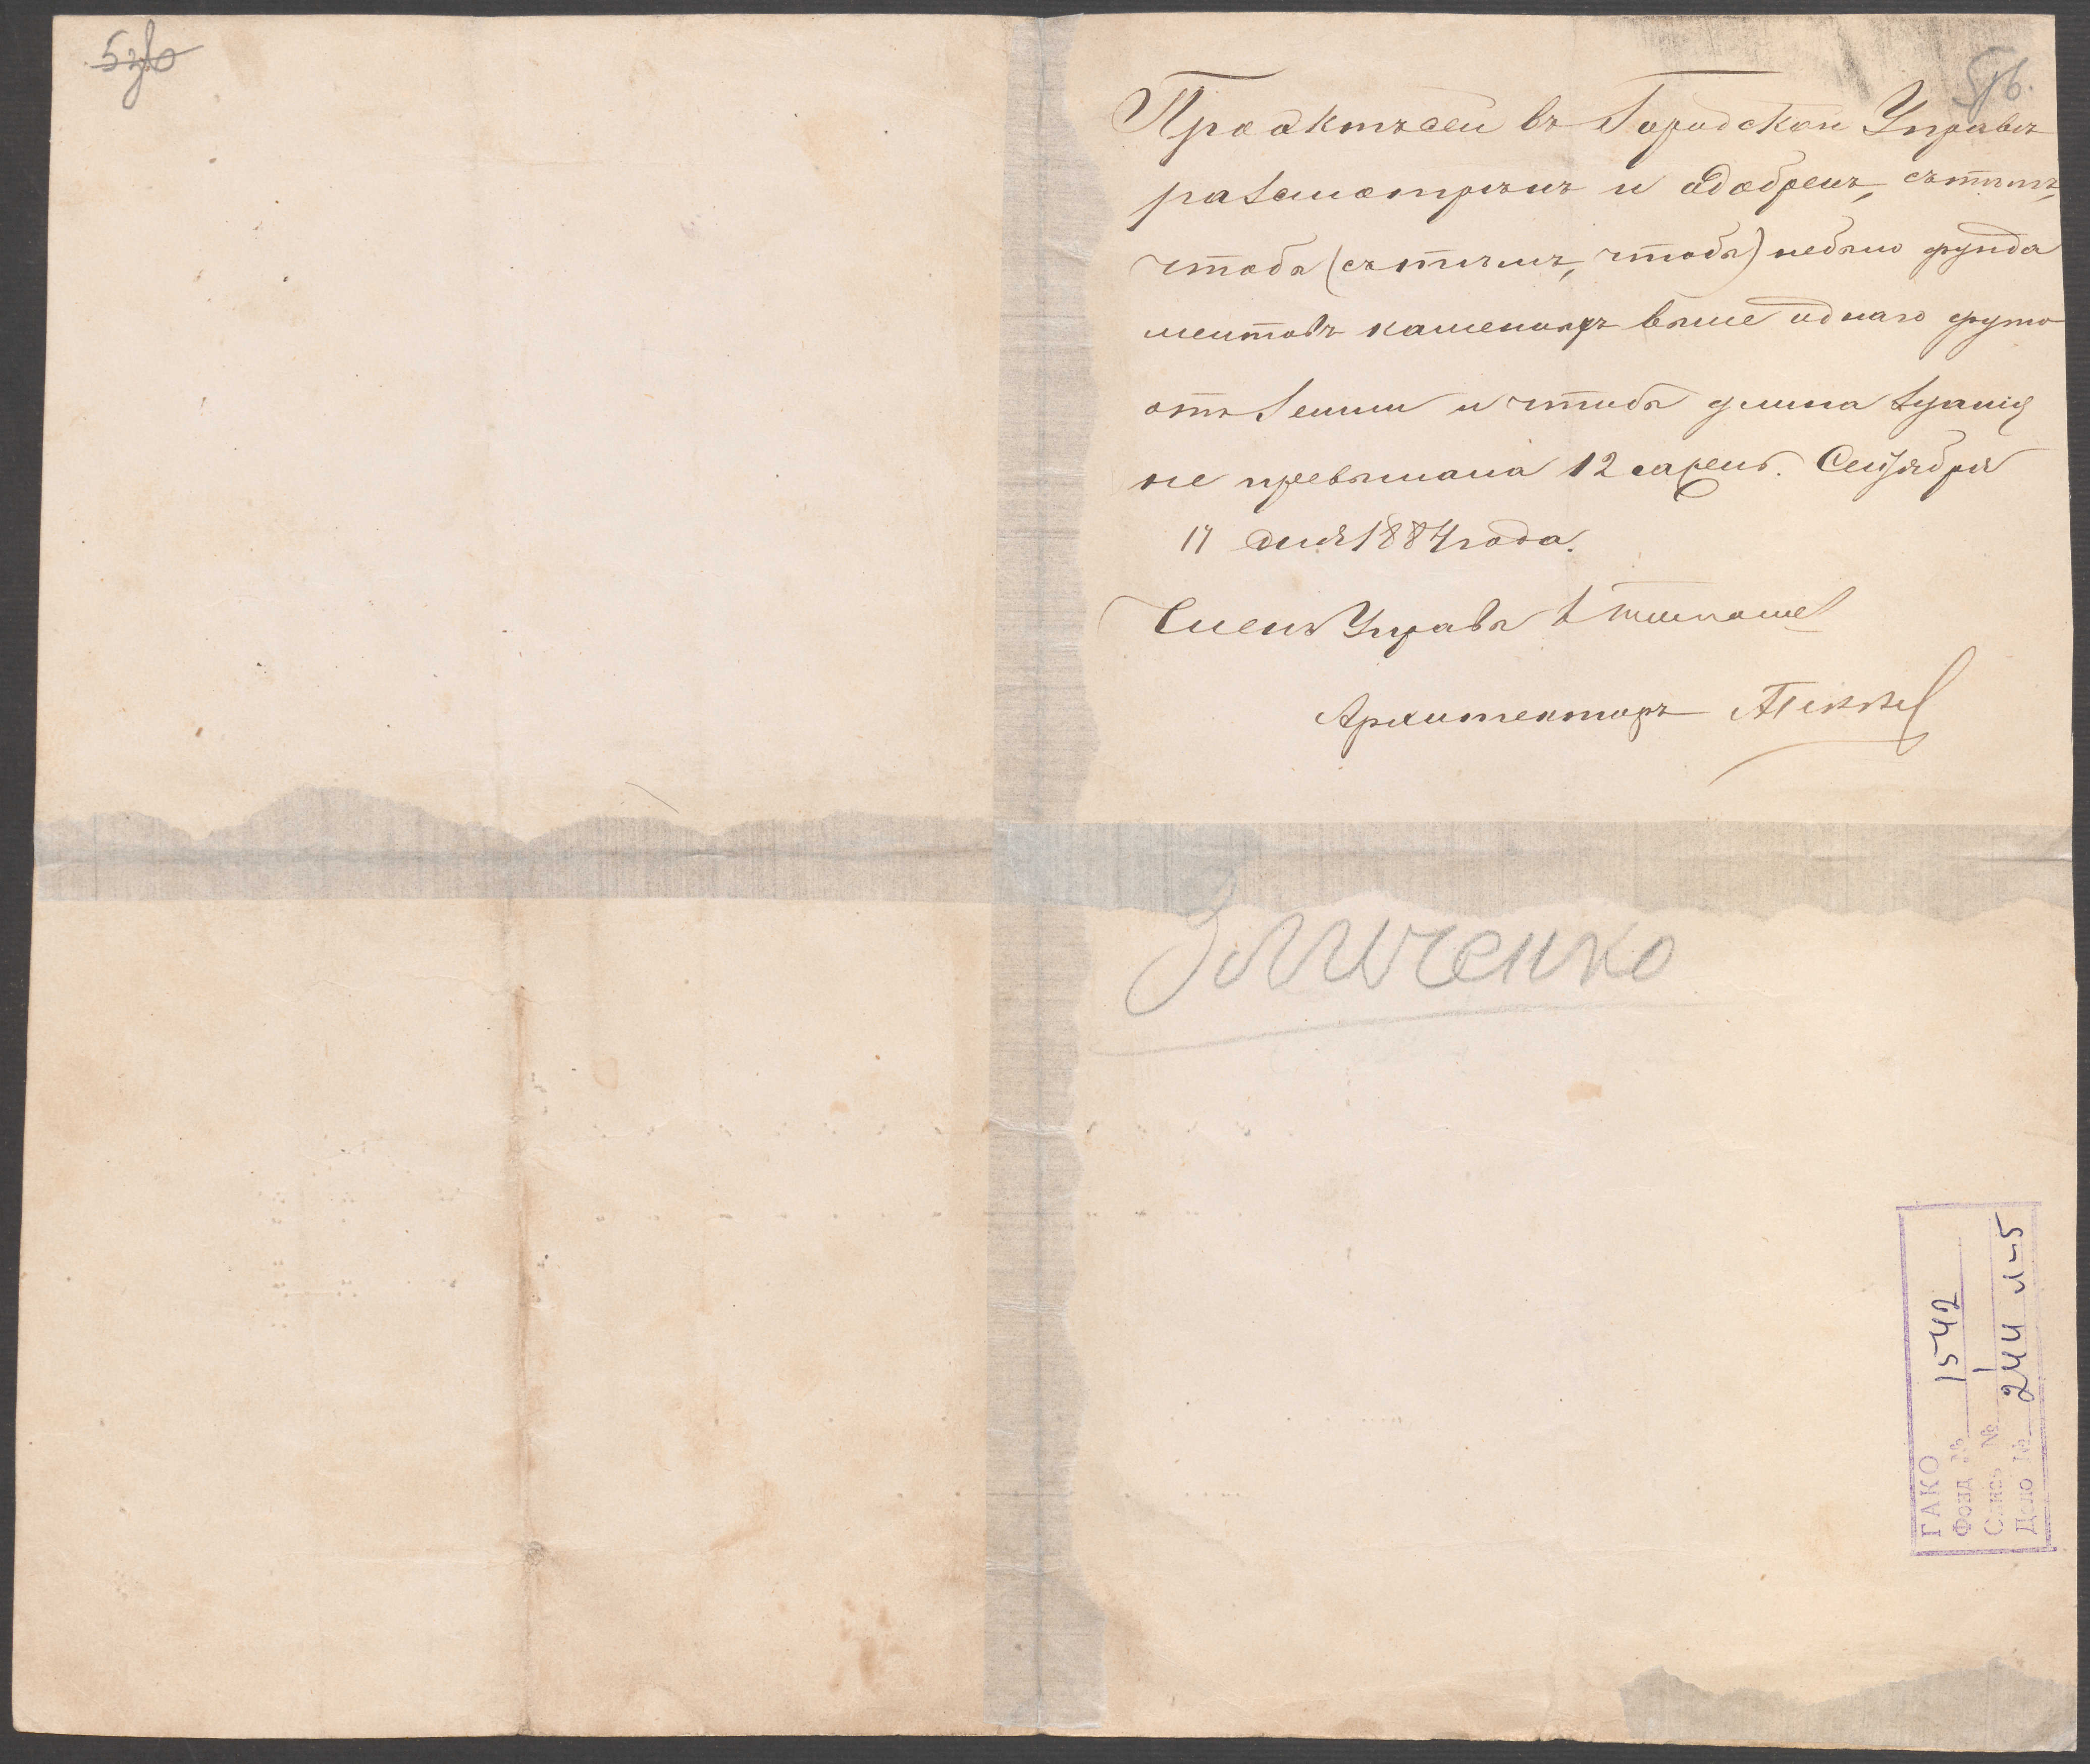 Проэктъ сей въ Городской Управѣ
разсмотрѣнъ и одобренъ, съ тѣмъ,
чтобы (съ тѣмъ, чтобы) небыло фунда
ментовъ каменныхъ выше однаго фута
отъ земли и чтобы длина зданія
не превышала 12 сажень. Сентября
17 дня 1884 года.
Членъ Управы
Архитекторъ
Зомченко
ГАКО
Фонд № 1542
Опись № 1
Дело № 244 л-5